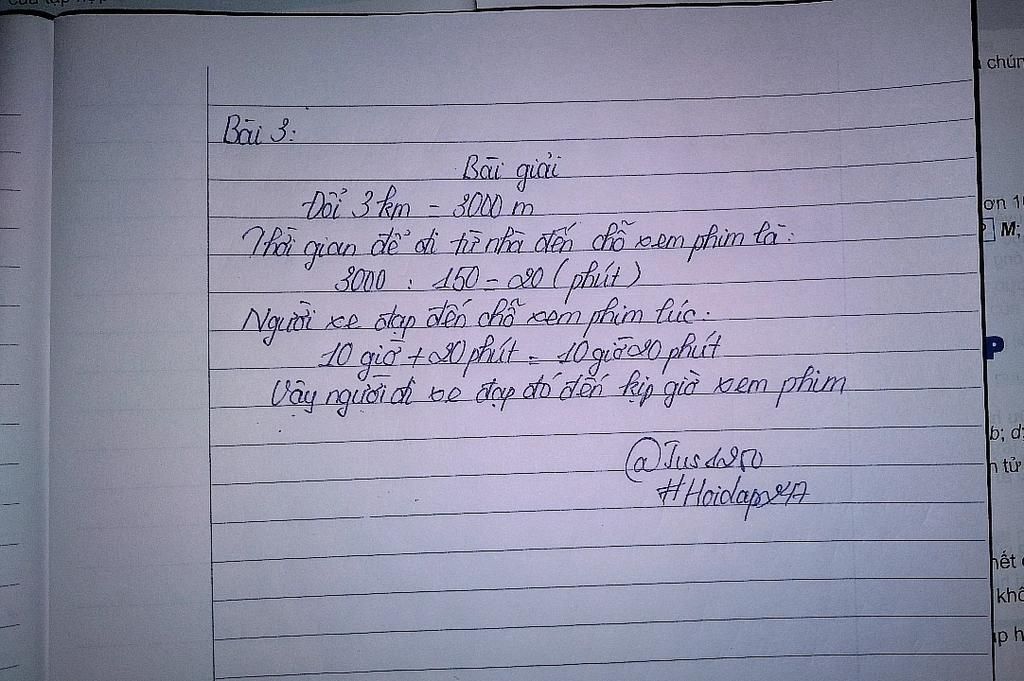 Bài 3:
Bài giải
Đổi 3 km = 3000 m
Thời gian để đi từ nhà đến chỗ xem phim là:
3000 : 150 = 20 (phút)
Người xe đạp đến chỗ xem phim lúc:
10 giờ + 20 phút = 10 giờ 20 phút
Vậy người đi xe đạp đó đến kịp giờ xem phim
@Jus1250
#Hoidap247
chún
ơn 1
M;
P
b; d;
n tử
hết
khô
p h